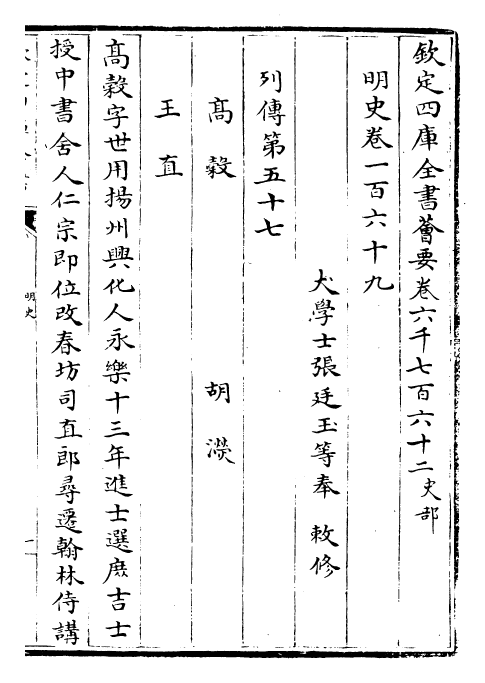 欽定四庫全書薈要卷六千七百六十二史部
明史卷一百六十九
大學士張廷玉等奉 敕修
列傳第五十七
高榖 胡濙
王直
高榖字世用揚州興化人永樂十三年進士選庶吉士
授中書舍人仁宗即位改春坊司直郎尋遷翰林侍講
明史
一